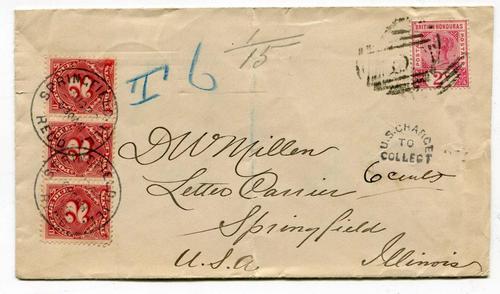 1/15
T 6
BRITISH HONDURAS
POSTAGE
POSTAGE
2
2
2
2
SPRINGFI
U.S. CHARGE
TO
COLLECT
D W Millen
Letter Carrier
6 cents
Springfield
Illinois
U.S.A